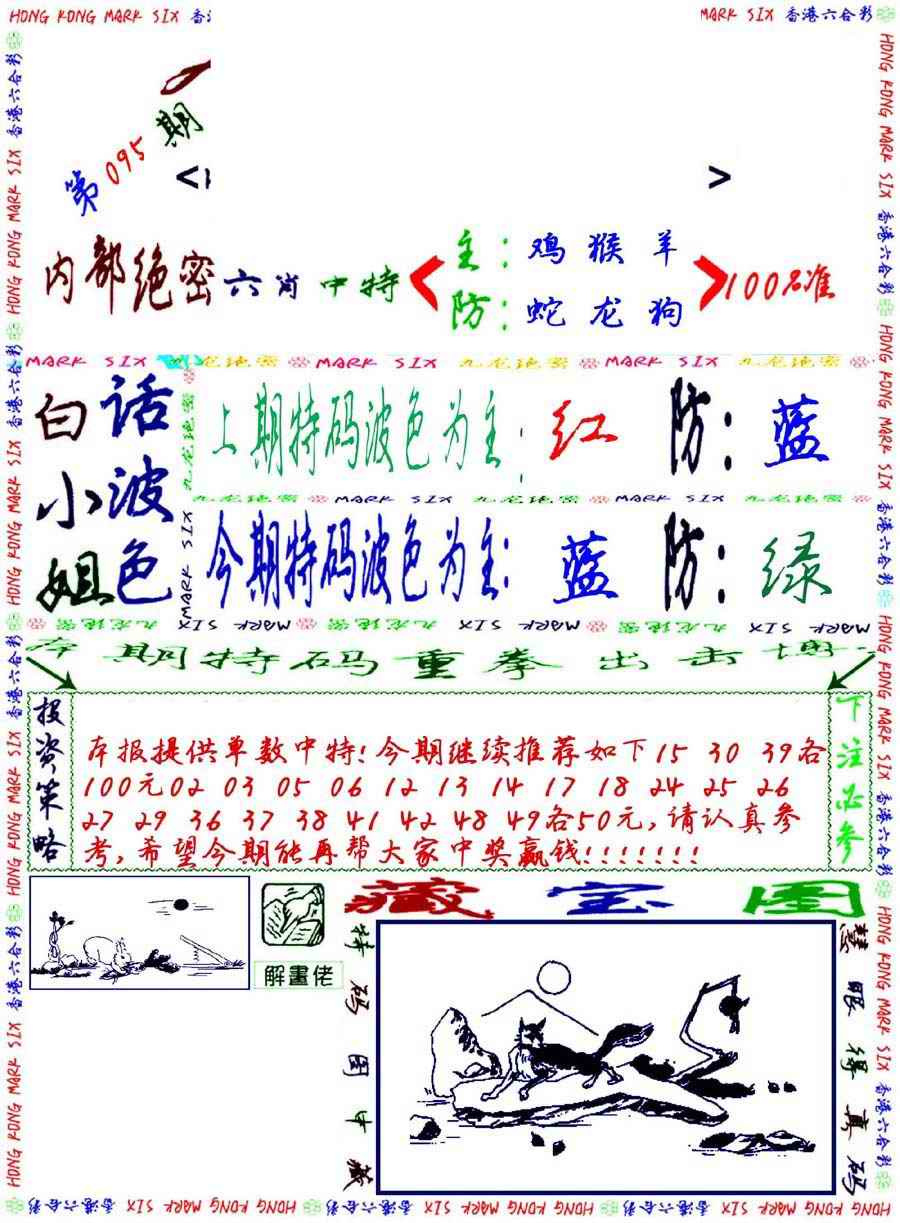 HONG KONG MARK SIX 香
MARK SIX 香港六合彩
第095期
< >
内部绝密六肖中特
主：鸡猴羊
防：蛇龙狗
100%准
MARK SIX 九龙绝密 MARK SIX 九龙绝密 MARK SIX 九龙绝密
白话小姐
波色
上期特码波色为主：红 防：蓝
九龙绝密 MARK SIX 九龙绝密 MARK SIX 九龙绝密
今期特码波色为主：蓝 防：绿
MARK SIX 九龙绝密 MARK SIX 九龙绝密 MARK SIX 九龙绝密 MARK SIX
期特码重拳出击
投资策略
本报提供单数中特!今期继续推荐如下15 30 39各
100元02 03 05 06 12 13 14 17 18 24 25 26
27 29 36 37 38 41 42 48 49各50元,请认真参
考,希望今期能再帮大家中奖赢钱!!!!!!!
下注必参
解畫佬
藏宝图
特码图中藏
慧眼得真码
HONG KONG MARK SIX 香港六合彩